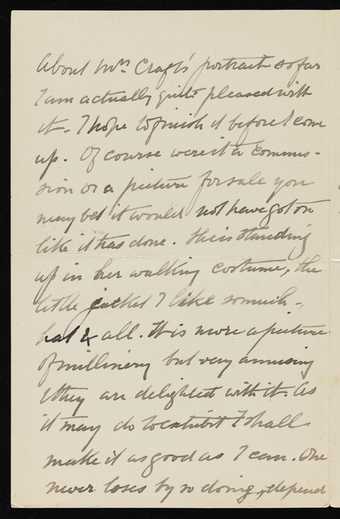 About Mrs Craft's portrait so far
I am actually quite pleased with
it. I hope to finish it before I come
up. Of course were it a commis-
sion or a picture for sale you
may bet it would not have got on
like it has done. She is standing
up in her walking costume, the
little jacket I like so much -
hat & all. It is more a picture
of millinery but very amusing
& they are delighted with it. As
it may do to exhibit I shall
make it as good as I can. One
never loses by so doing, depend